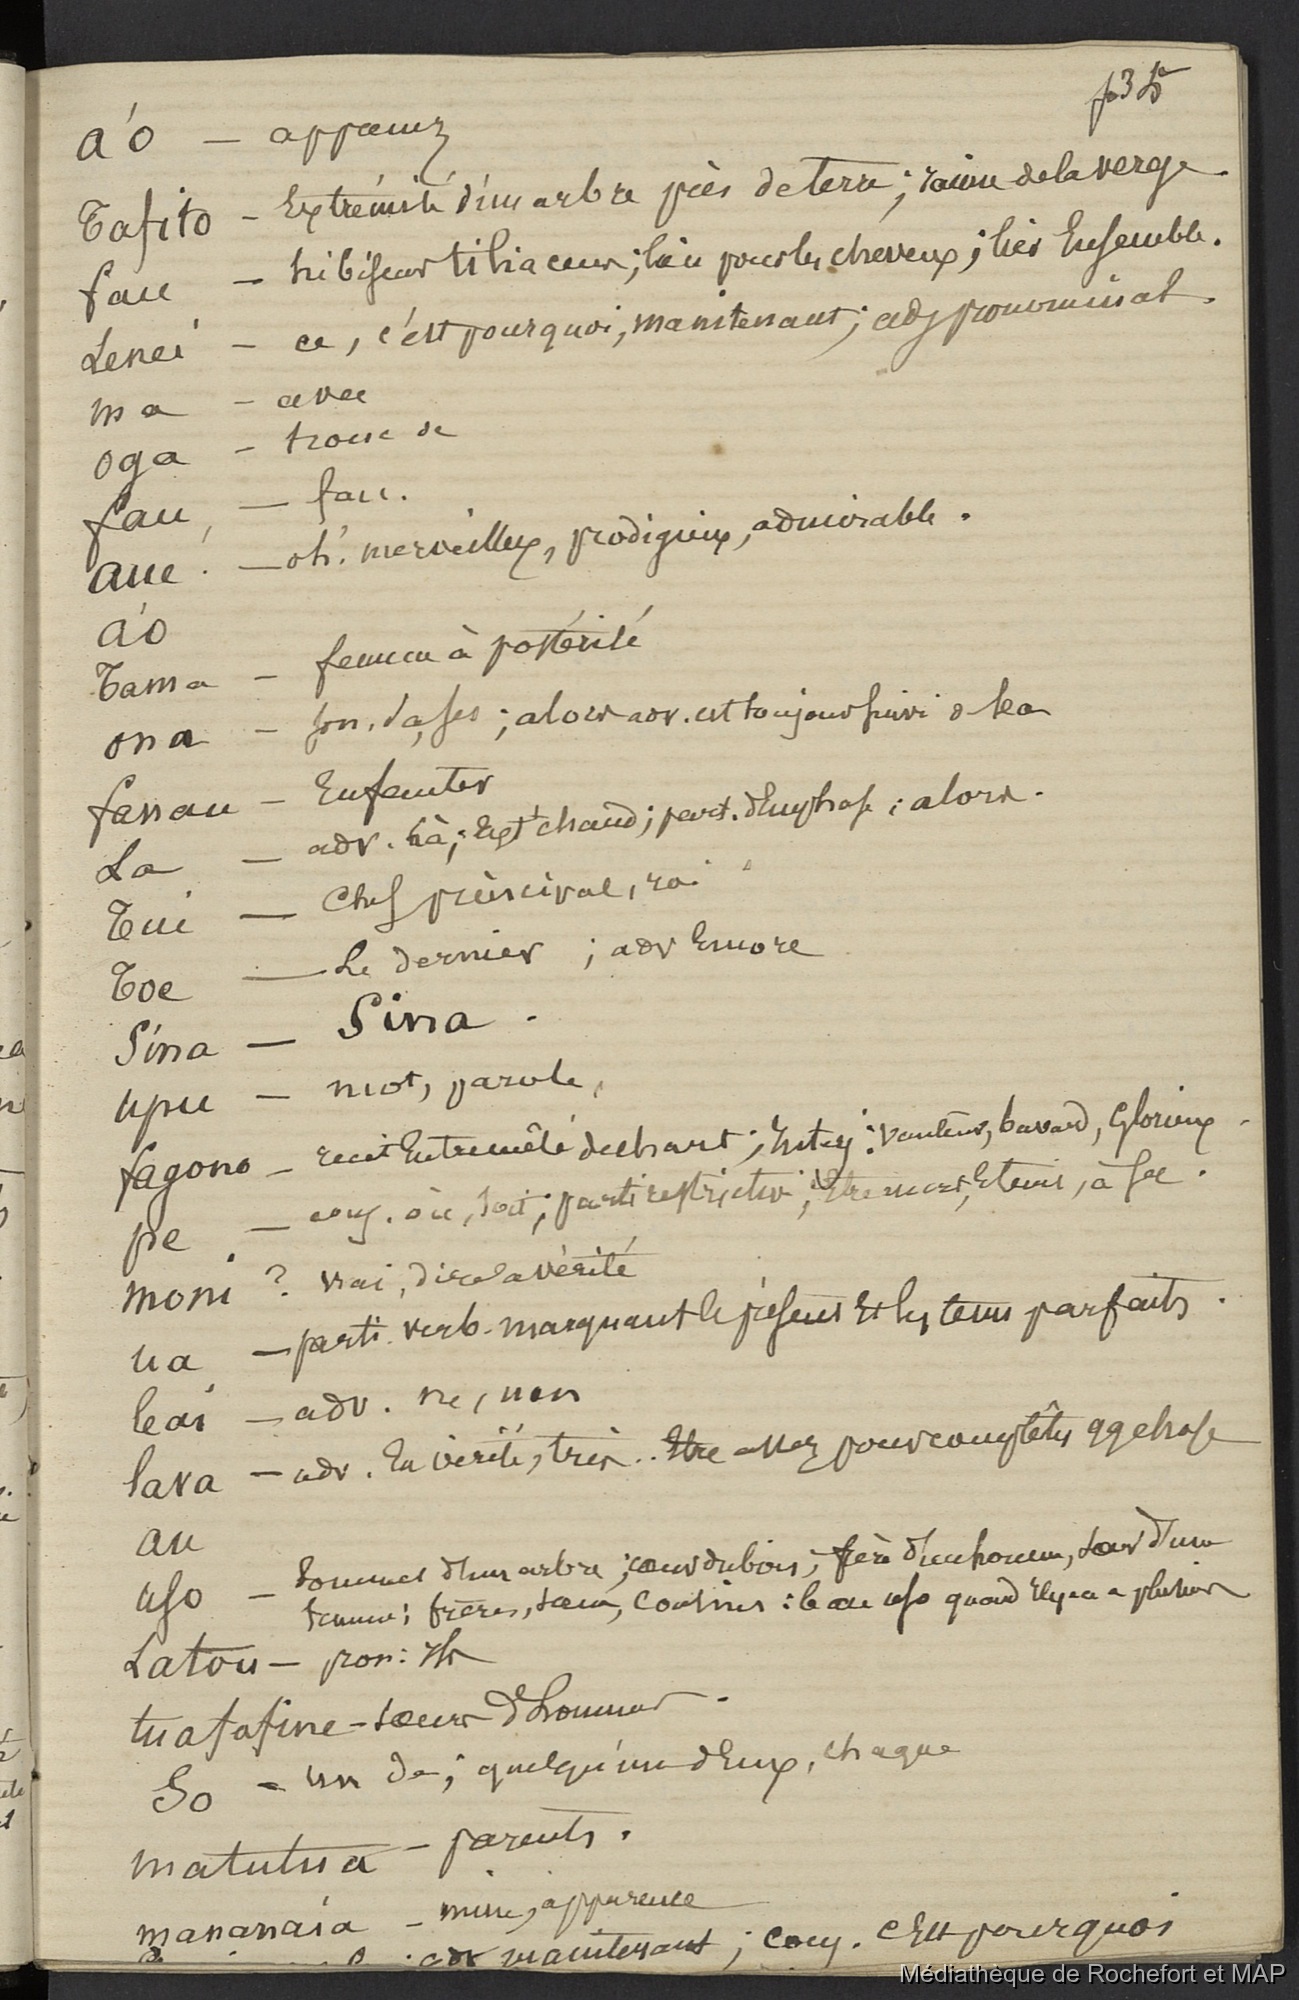 p 35
a'o — apparny
Tafito - Extrémité d'un arbre près de terre; racine de la verge.
fau - hibiscus tiliaceus; lien pour les cheveux; lier Ensemble.
Lenei - ce, c'est pourquoi, maintenant; adj pronominal.
ma - avec
oga - trou de
fau, — fau.
aué. — oh! merveilleux, prodigieux, admirable.
a'o
Tama - femme à postérité
ona - son, sa, ses; alors adv. est toujours suivi de lea
fanau - Enfanter
La — adv. là; Est chaud; part. d'Emphase; alors.
Tui — Chef principal, roi
Toe — Le dernier; adv Encore
Sina — Sina.
upu — mot, parole,
fagono - récit Entremêlé de chant; vanteur, bavard, Glorieux.
pe — conj. où, soit; parti restrictive; Etre mort, Eteint, à sec.
moni ? vrai, dire la vérité
ua — parti. verb. marquant le présent Et les tems parfaits.
leai — adv. ne, non
lava - adv. En vérité, très.. Etre assez pour compléter qq chose
au
uso - Sommet d'un arbre; coeur du bois; frère d'un homme, soeur d'une
femme; frères, soeurs, Cousins: le au uso quand il y en a plusieurs
Latou - pron: ils
tuafafine - soeur d'homme.
So - un de; quelqu'un d'Eux, chaque
matutua - parents.
mananaia - mine, apparence
adv maintenant; conj. C'Est pourquoi
Médiathèque de Rochefort et MAP